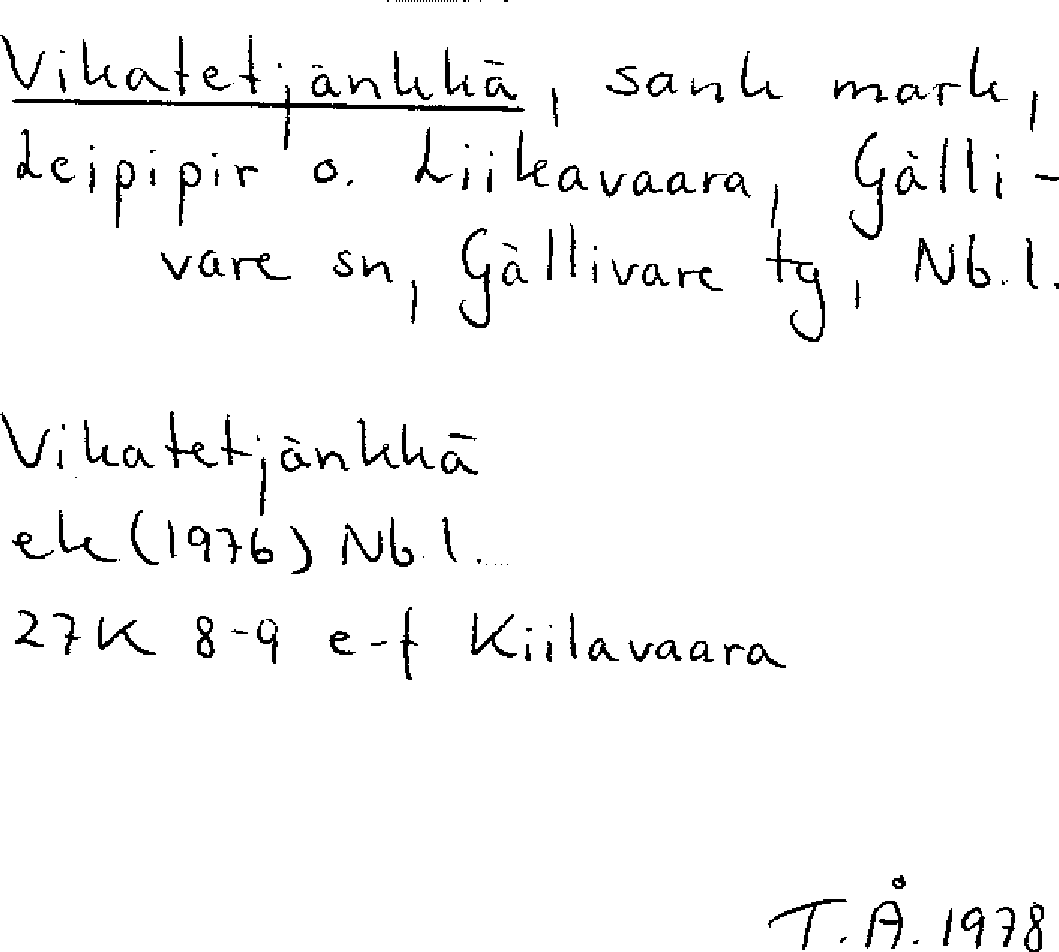 Vikatetjänkkä, sank mark,
Leipipir o. Liikavaara, Gälli-
vare sn, Gällivare tg, Nb.l.
Vikatetjänkkä
ek (1976) Nb l.
27K 8-9 e-f Kiilavaara
T.Å. 1978